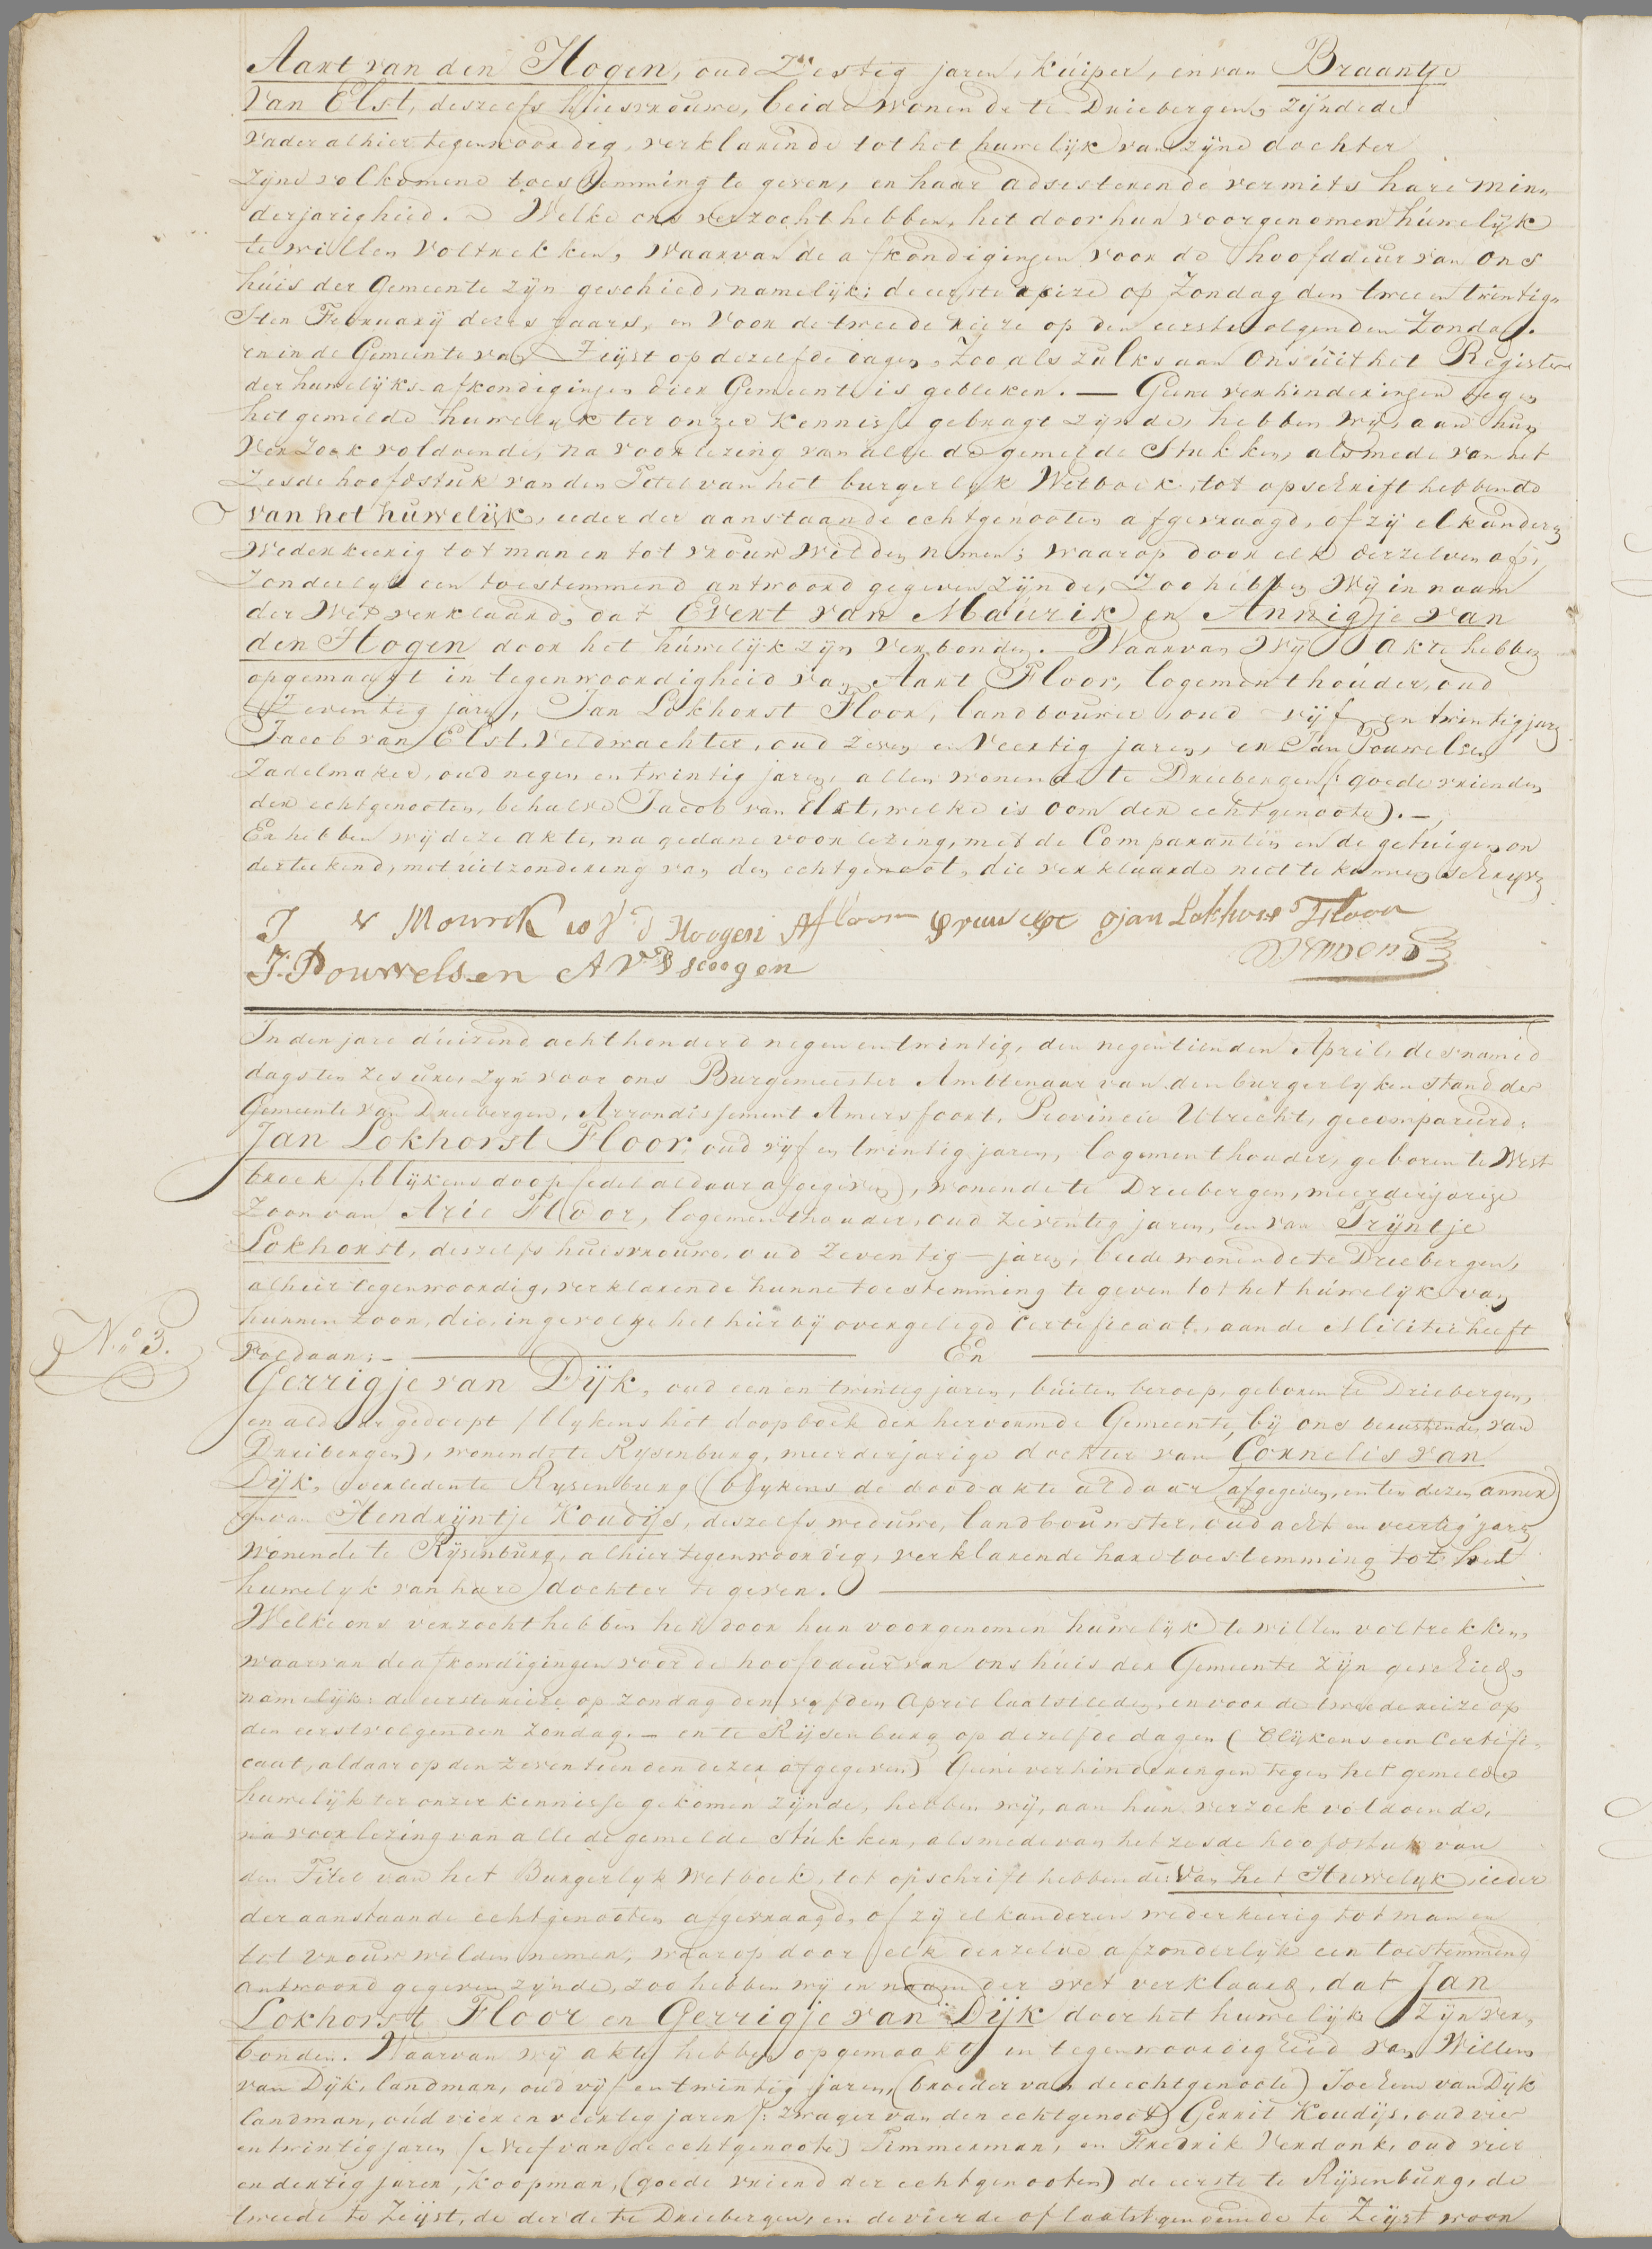 Aart van den Hogen, oud Zestig jaren, kuiper, en van Braantje
van Elst, deszelfs huisvrouwe, beide wonende te Driebergen, zijnde de
vader alhier tegenwoordig, verklarende tot het huwelijk van zijne dochter
zijne volkomene toestemming te geven, en haar adsisterende vermits hare min-
derjarigheid. Welke ons verzocht hebben, het door hun voorgenomen huwelijk
te willen voltrekken, waarvan de afkondigingen voor de hoofddeur van ons
huis der Gemeente zijn geschied, namelijk: de eerste reize op Zondag den twee en twintig-
sten February dezes jaars, en voor de tweede reize op den eerstvolgenden Zondag.
en in de Gemeente van Zeijst op dezelfde dagen, zoo als zulks aan ons uit het Register
der huwelijks-afkondigingen dier Gemeente is gebleken. — Geene verhinderingen tegen
het gemelde huwelijk ter onzer kennisse gebragt zijnde, hebben wij, aan hun
verzoek voldoende, na voorlezing van alle de gemelde stukken, alsmede van het
zesde hoofdstuk van den Titel van het burgerlijk Wetboek, tot opschrift hebbende
van het huwelijk, ieder der aanstaande echtgenooten afgevraagd, of zij elkanderen
wederkeerig tot man en tot vrouw wilden nemen; waarop door elk derzelven af-
zonderlijk een toestemmend antwoord gegeven zijnde, zoo hebben wij in naam
der Wet verklaard, dat Evert van Maurik en Annigje van
den Hogen door het huwelijk zijn verbonden. — Waarvan wij akte hebben
opgemaakt in tegenwoordigheid van Aart Floor, logementhouder, oud
Zeventig jaren, Jan Lokhorst Floor, landbouwer, oud vijf en twintig jaren
Jacob van Elst, veldwachter, oud zeven en veertig jaren, en Jan Pouwelsen
Zadelmaker, oud negen en twintig jaren, allen wonende te Driebergen (goede vrienden
der echtgenooten, behalve Jacob van Elst, welke is oom der echtgenoote). —
En hebben wij deze akte, na gedane voorlezing, met de Comparanten en de getuigen on
derteekend, met uitzondering van den echtgenoot, die verklaarde niet te kunnen schrijven
J v Mourck A V D Hoogen A Floor Jan Lokhorst Floor
J. Pouwelsen A V D Hoogen
In den jare duizend achthonderd negen en twintig, den negentienden April, des namid
dags ten zes ure, zijn voor ons Burgemeester Ambtenaar van den burgerlijken stand der
Gemeente van Driebergen, Arrondissement Amersfoort, Provincie Utrecht, gecompareerd:
Jan Lokhorst Floor, oud vijf en twintig jaren, logementhouder, geboren te West
broek (blijkens doopsedel aldaar afgegeven), wonende te Driebergen, meerderjarige
Zoon van Arie Floor, logementhouder, oud zeventig jaren, en van Trijntje
Lokhorst, deszelfs huisvrouwe, oud zeventig jaren, beide wonende te Driebergen,
alhier tegenwoordig, verklarende hunne toestemming te geven tot het huwelijk van
hunnen zoon, die, ingevolge het hierbij overgelegd Certificaat, aan de Militie heeft
No. 3.
voldaan; — En
Gerrigje van Dijk, oud een en twintig jaren, buiten beroep, geboren te Driebergen,
en aldaar gedoopt (blijkens het doopboek der hervormde Gemeente, bij ons berustende, van
Driebergen), wonende te Rijsenburg, meerderjarige dochter van Cornelis van
Dijk, overleden te Rijsenburg (blijkens de doodakte aldaar afgegeven, en ten dezen annex)
en van Hendrijntje Koudijs, deszelfs weduwe, landbouwster, oud acht en veertig jaren
wonende te Rijsenburg, alhier tegenwoordig, verklarende hare toestemming tot het
huwelijk van hare dochter te geven.
Welke ons verzocht hebben het door hun voorgenomen huwelijk te willen voltrekken,
waarvan de afkondigingen voor de hoofddeur van ons huis der Gemeente zijn geschied,
namelijk: de eerste reize op zondag den vijfden April laatstleden, en voor de tweede reize op
den eerstvolgenden zondag. — en te Rijsenburg op dezelfde dagen (blijkens een Certifi-
caat, aldaar op den zeventienden dezer afgegeven) Geene verhinderingen tegen het gemelde
huwelijk ter onzer kennisse gekomen zijnde, hebben wij, aan hun verzoek voldoende,
na voorlezing van alle de gemelde stukken, alsmede van het zesde hoofdstuk van
den Titel van het Burgerlijk Wetboek, tot opschrift hebbende: Van het Huwelijk, ieder
der aanstaande echtgenooten afgevraagd, of zij elkanderen wederkeerig tot man en
tot vrouw wilden nemen, waarop door elk derzelve afzonderlijk een toestemmend
antwoord gegeven zijnde, zoo hebben wij in naam der wet verklaard, dat Jan
Lokhorst Floor en Gerrigje van Dijk door het huwelijk zijn ver-
bonden. Waarvan wij akte hebben opgemaakt in tegenwoordigheid van Willem
van Dijk, landman, oud vijf en twintig jaren, (broeder van de echtgenoote) Jochem van Dijk
landman, oud vier en veertig jaren (: zwager van den echtgenoot) Gerrit Koudijs, oud vier
en twintig jaren (Neef van de echtgenoote) Timmerman, en Fredrik Verdonk, oud vier
en dertig jaren, koopman, (goede vriend der echtgenooten) de eerste te Rijsenburg, de
tweede te Zeijst, de derde te Driebergen, en de vierde of laatstgenoemde te Zeijst woon